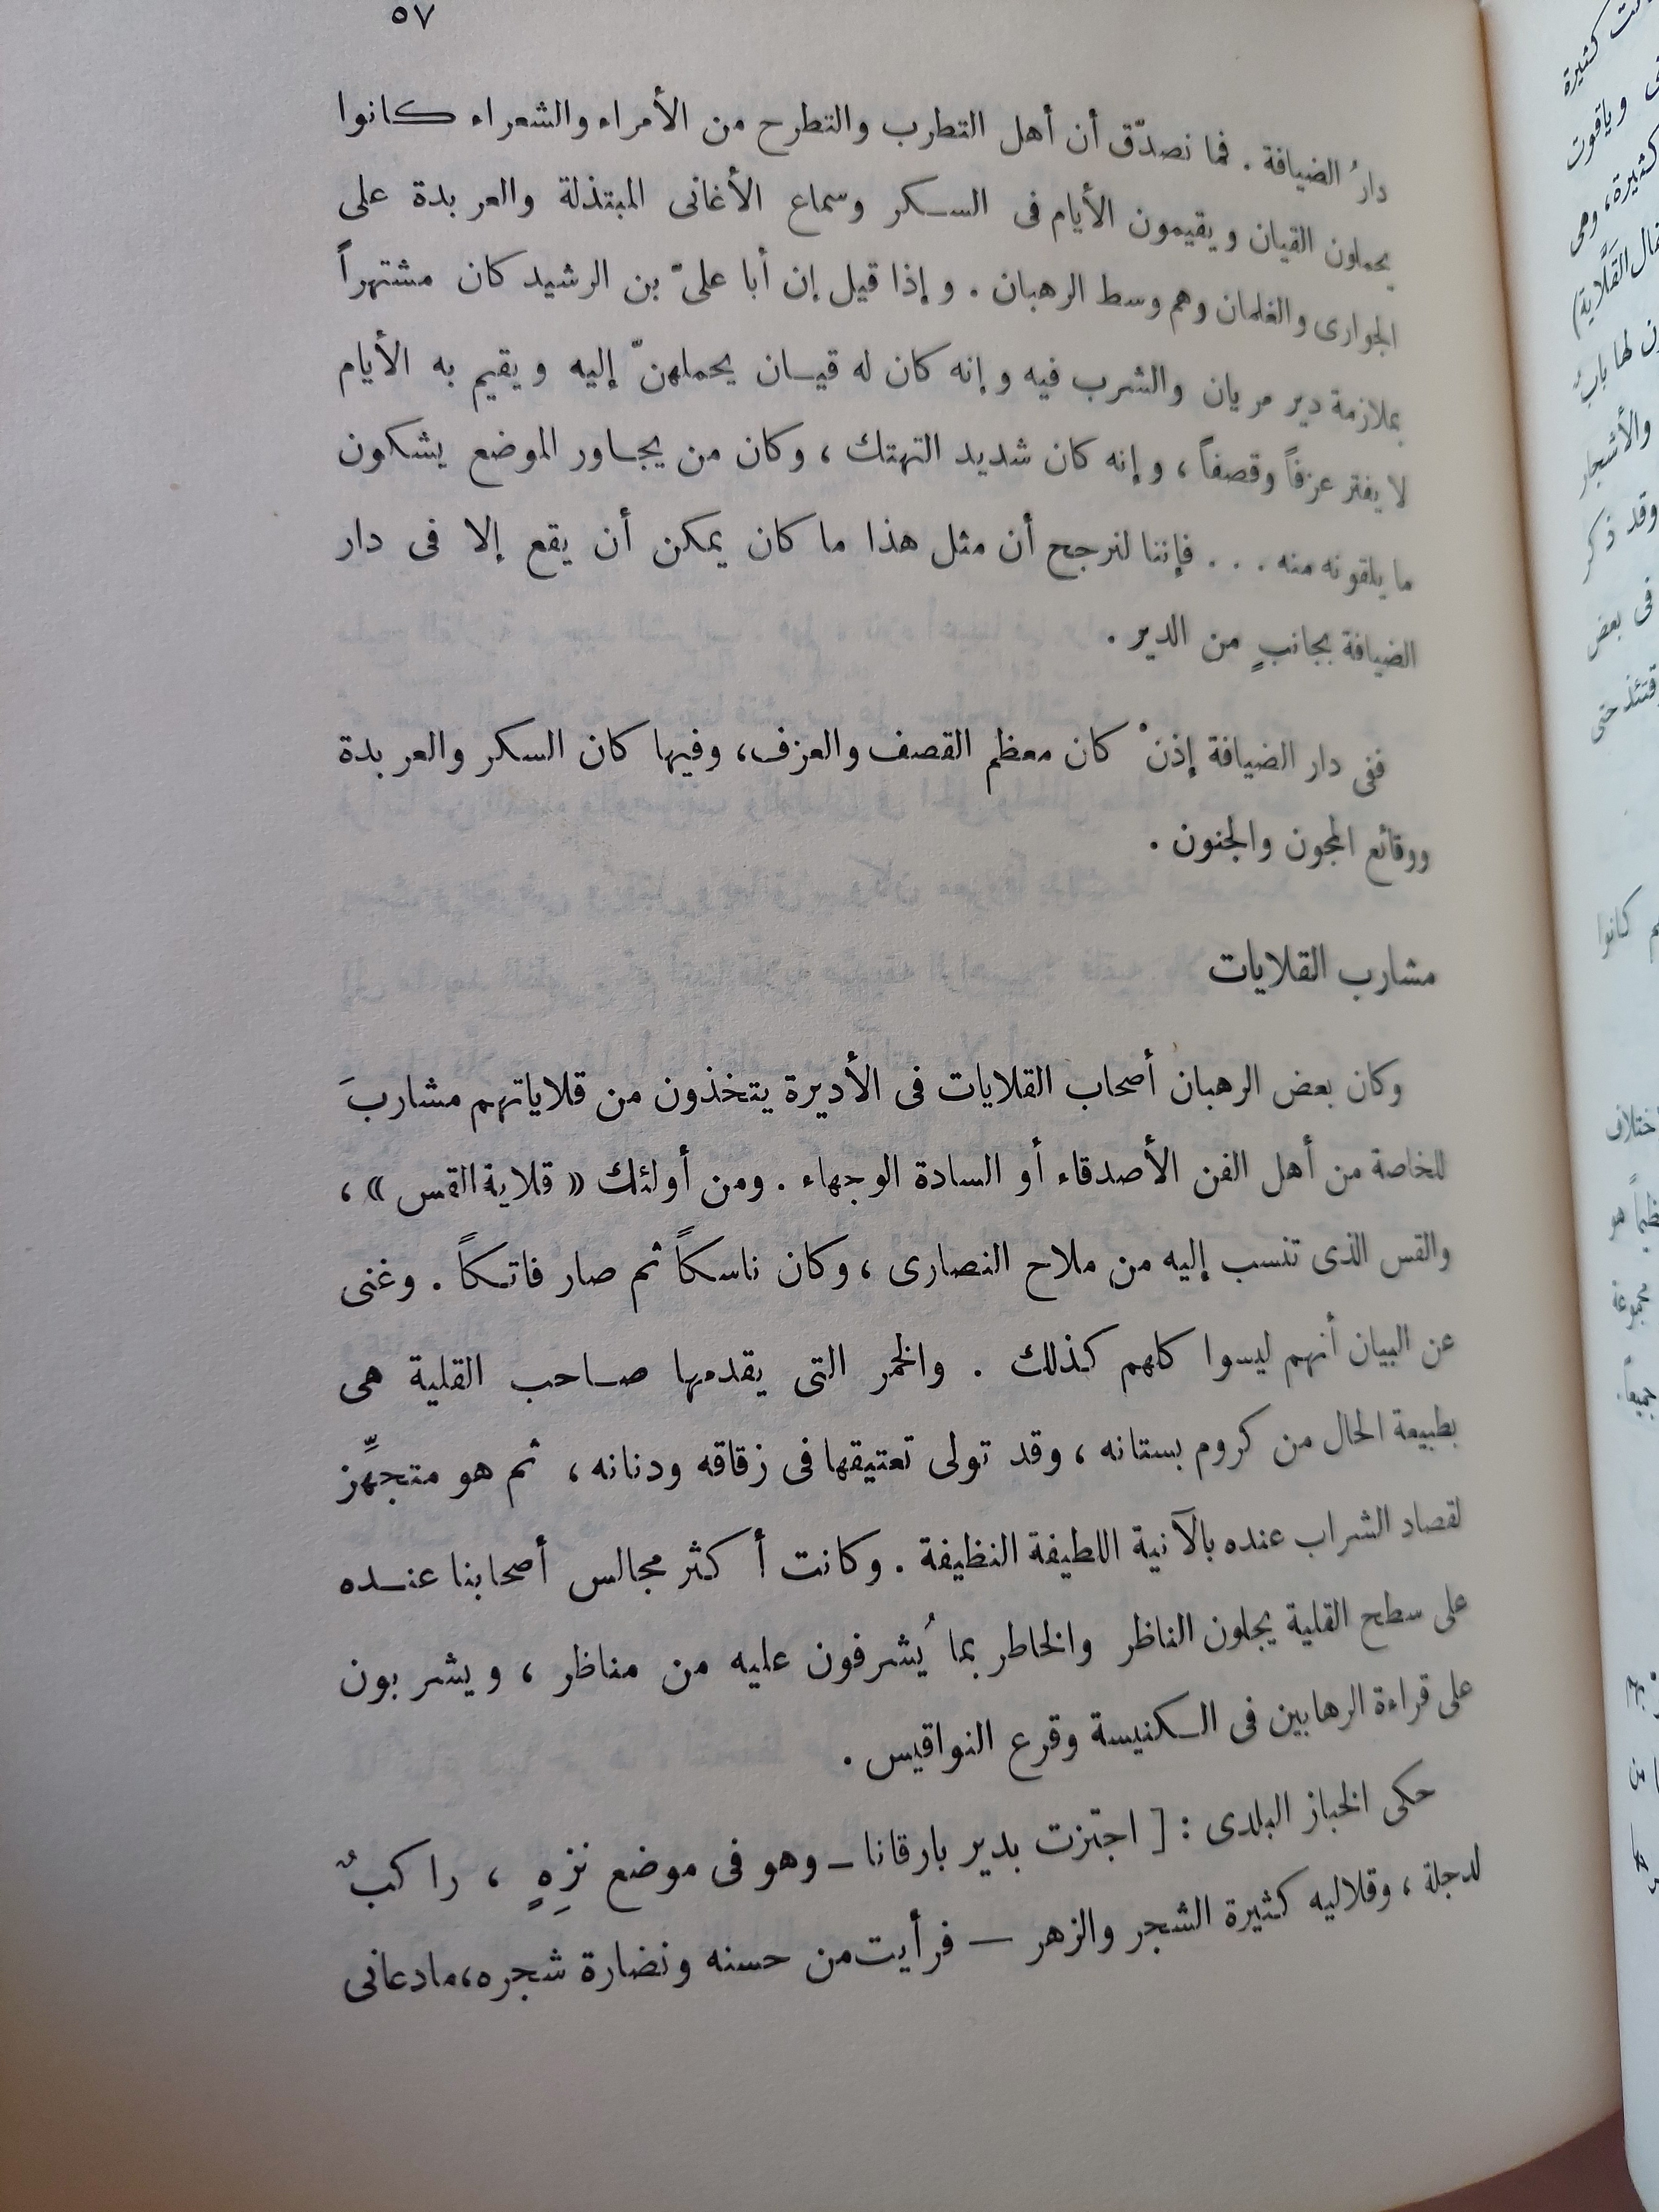 ٥٧
دارُ الضيافة . فما نصدّق أن أهل التطرب والتطرح من الأمراء والشعراء كانوا
يحملون القيان ويقيمون الأيام فى السكر وسماع الأغانى المبتذلة والعربدة على
الجوارى والغلمان وهم وسط الرهبان . وإذا قيل إن أبا علىّ بن الرشيد كان مشتهراً
بملازمة دير مريان والشرب فيه وإنه كان له قيان يحملهنّ إليه ويقيم به الأيام
لا يفتر عزفاً وقصفاً ، وإنه كان شديد التهتك ، وكان من يجاور الموضع يشكون
ما يلقونه منه . . . فإننا لنرجح أن مثل هذا ما كان يمكن أن يقع إلا فى دار
الضيافة بجانبٍ من الدير .
ففى دار الضيافة إذنْ كان معظم القصف والعزف، وفيها كان السكر والعربدة
ووقائع المجون والجنون .
مشارب القلايات
وكان بعض الرهبان أصحاب القلايات فى الأديرة يتخذون من قلاياتهم مشاربَ
للخاصة من أهل الفن الأصدقاء أو السادة الوجهاء . ومن أولئك « قلاية القس » ،
والقس الذى تنسب إليه من ملاح النصارى ، وكان ناسكاً ثم صار فاتكاً . وغنى
عن البيان أنهم ليسوا كلهم كذلك . والخمر التى يقدمها صاحب القلية هى
بطبيعة الحال من كروم بستانه ، وقد تولى تعتيقها فى زقاقه ودنانه ، ثم هو متجهِّز
لقصاد الشراب عنده بالآنية اللطيفة النظيفة . وكانت أكثر مجالس أصحابنا عنده
على سطح القلية يجلون الناظر والخاطر بما يُشرفون عليه من مناظر ، ويشربون
على قراءة الرهابين فى الكنيسة وقرع النواقيس .
حكى الخباز البلدى : [ اجتزت بدير بارقانا ــ وهو فى موضع نزِهٍ ، راكبٌ
لدجلة ، وقلاليه كثيرة الشجر والزهر — فرأيت من حسنه ونضارة شجره، ما دعانى